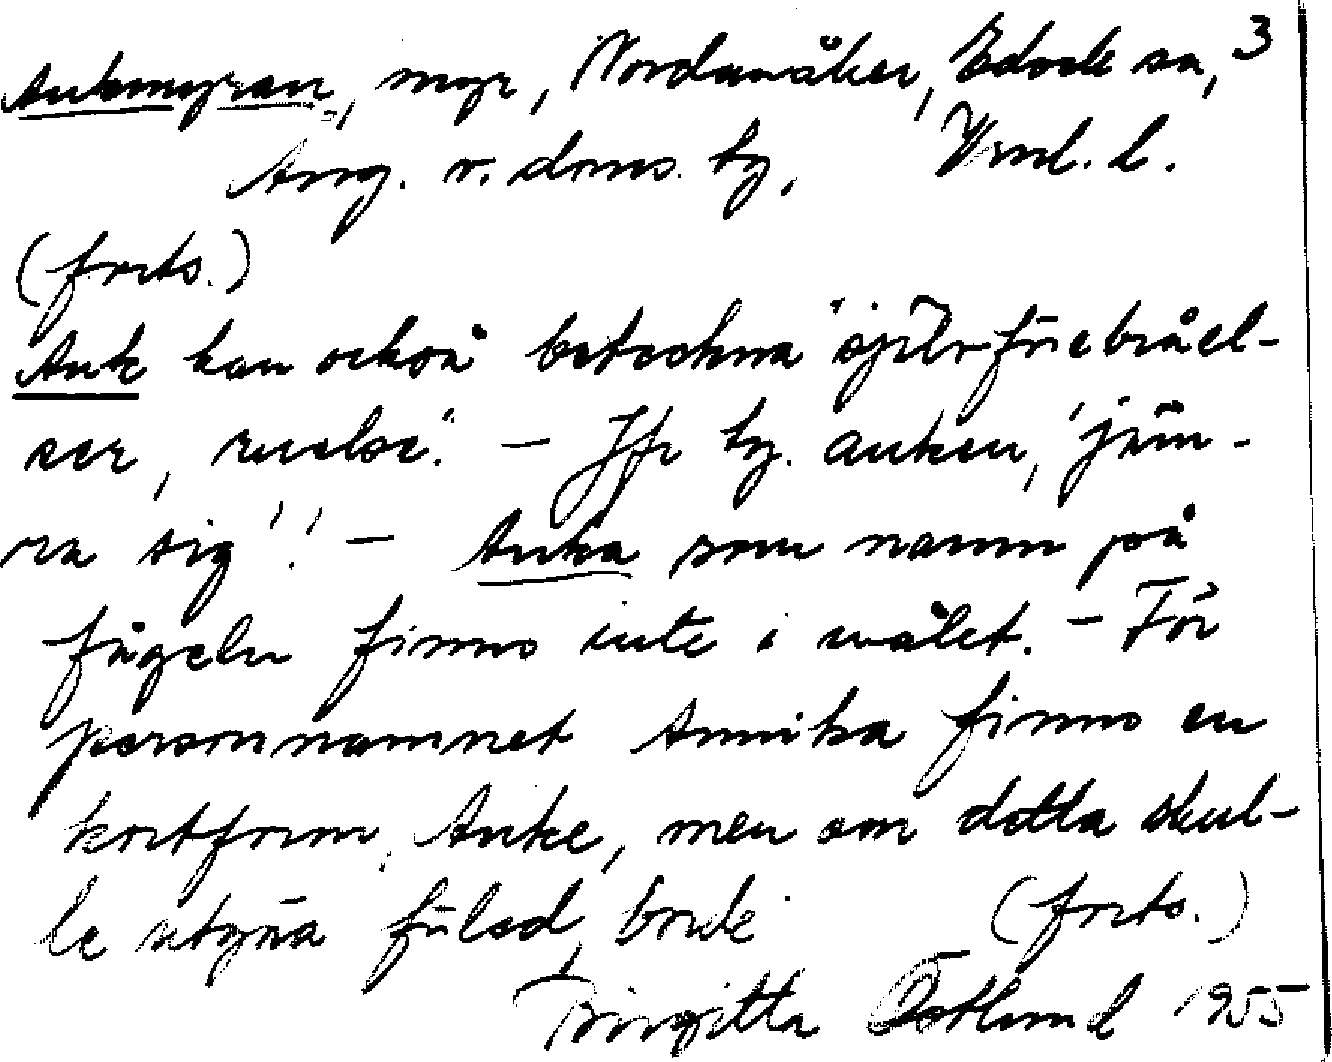 Ankmyran, myr, Nordanåker, Edsele sn, 3
Ång. v. doms. tg, Vnrl. l.
(forts.)
Ank kan också beteckna 'självförebråel-
ser, ruelse'. – Jfr ty. anken, 'jäm-
ra sig'! – Anka som namn på
fågeln finns inte i målet. – För
personnamnet Annika finns en
kortform, Anke, men om detta skul-
le utgöra förled, borde (forts.)
Birgitta Östlund 1955